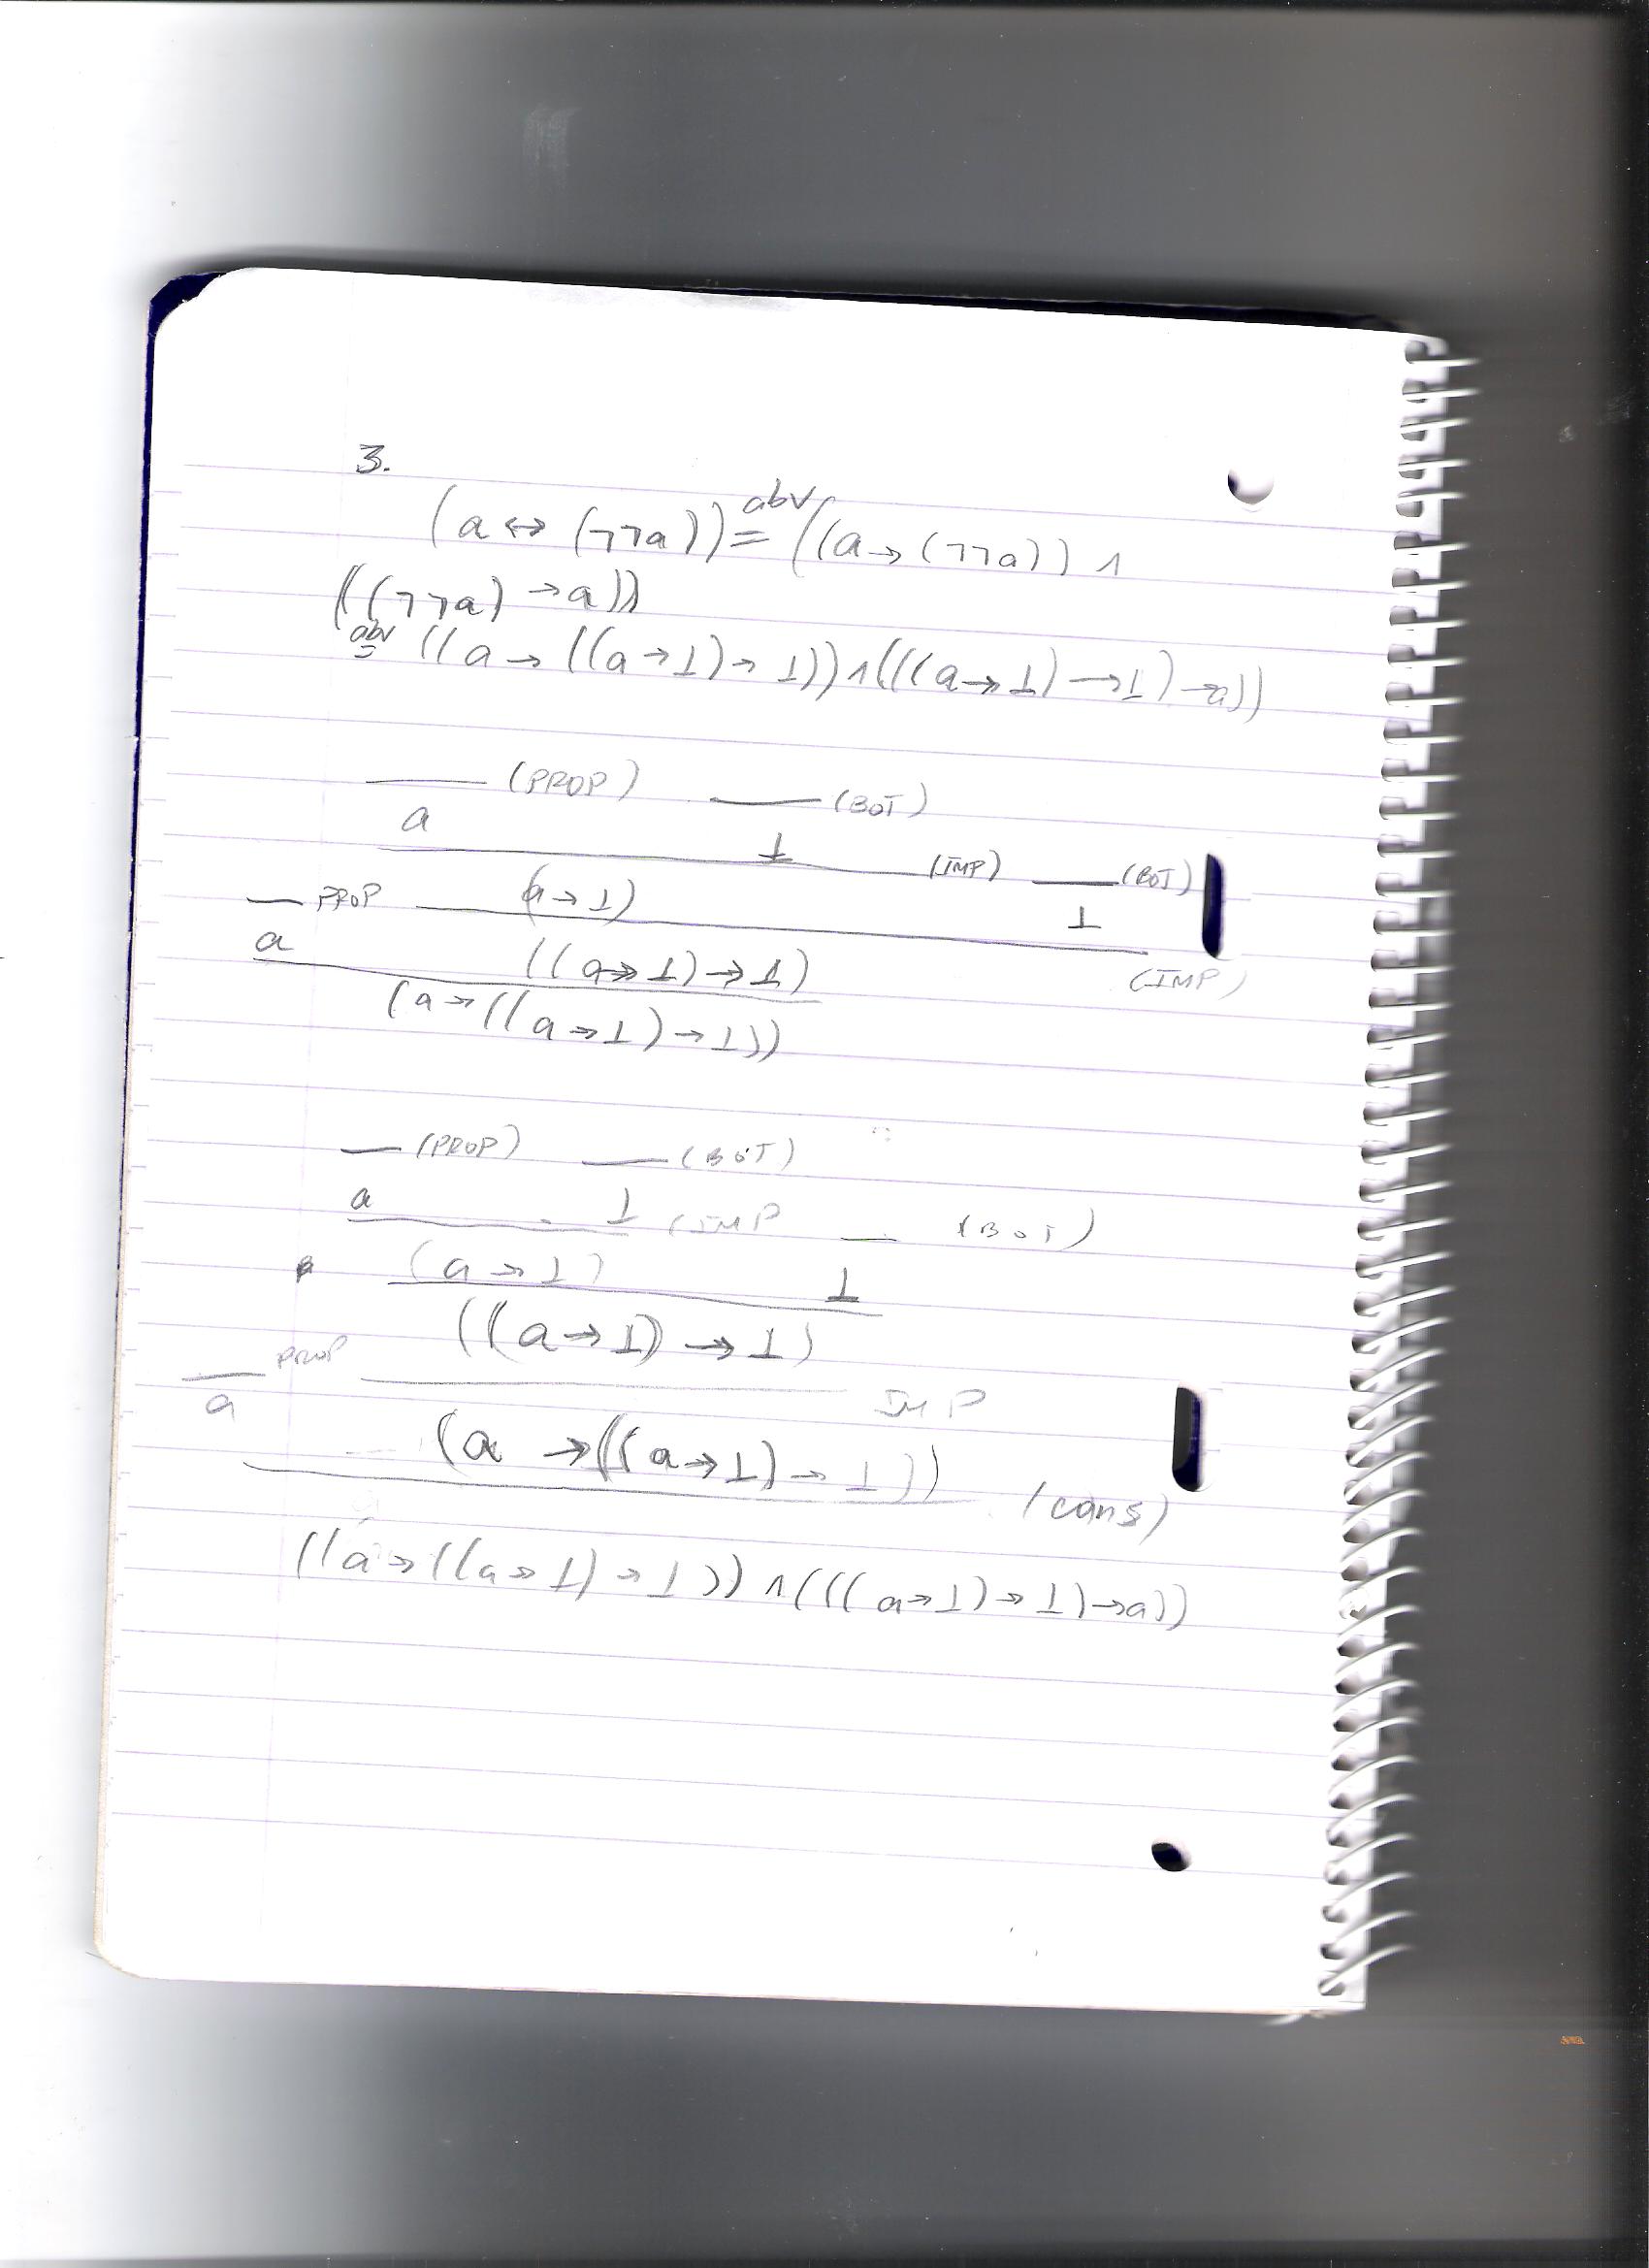 3.
(a ↔ (¬¬a)) abv= ((a → (¬¬a)) ∧
((¬¬a) → a))
abv= ((a → ((a → ⊥) → ⊥)) ∧ (((a → ⊥) → ⊥) → a))
(PROP) (BOT)
a ⊥ (IMP) (BOT)
PROP (a → ⊥) ⊥
a ((a → ⊥) → ⊥) (IMP)
(a → ((a → ⊥) → ⊥))
(PROP) (BOT)
a ⊥ (IMP (BOT)
(a → ⊥) ⊥
((a → ⊥) → ⊥)
PROP
a IMP
(a → ((a → ⊥) → ⊥))
(cons)
((a → ((a → ⊥) → ⊥)) ∧ (((a → ⊥) → ⊥) → a))